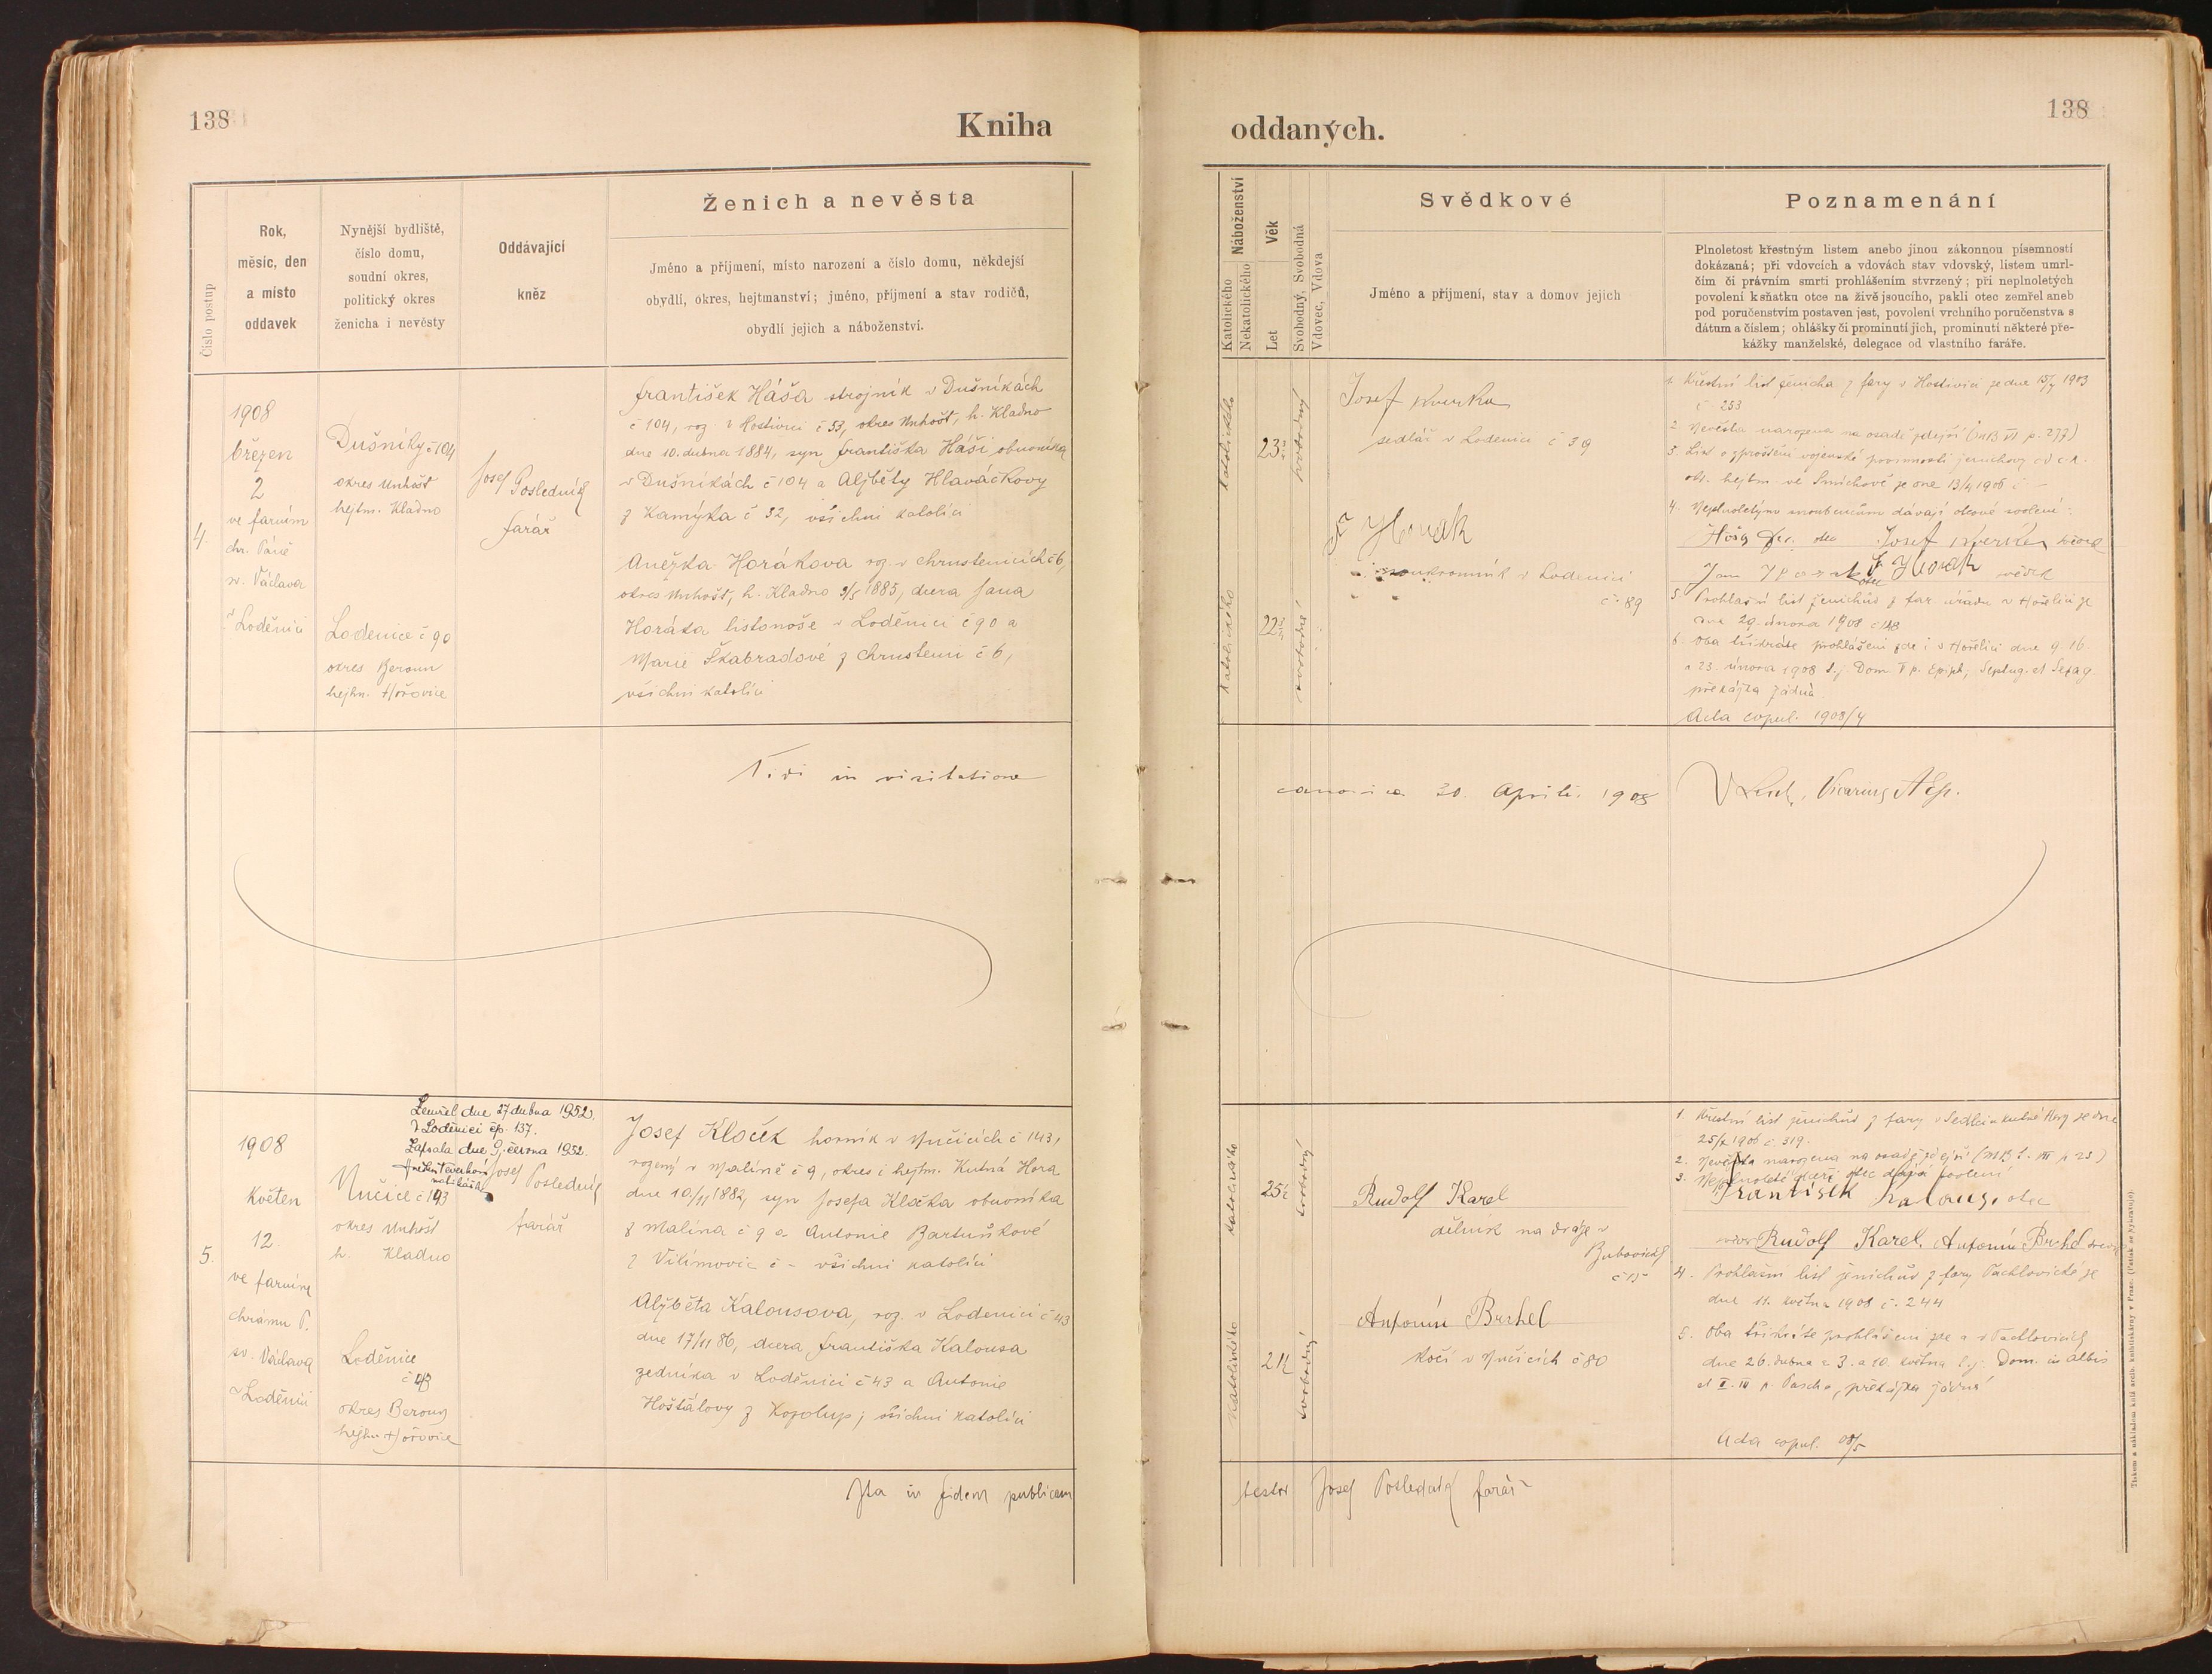 138
Kniha
Číslo postup
Rok,
měsíc, den
a místo
oddavek
Nynější bydliště,
číslo domu,
soudní okres,
politický okres
ženicha i nevěsty
Oddávající
kněz
Ženich a nevěsta
Jméno a příjmení, místo narození a číslo domu, někdejší
obydlí, okres, hejtmanství; jméno, příjmení a stav rodičů,
obydlí jejich a náboženství.
4.
1908
březen
2
ve farním
chr. Páně
sv. Václava
v Loděnici
Dušníky č 104
okres Unhošť
hejtm. Kladno
Loděnice č 90
okres Beroun
hejtm. Hořovice
Josef Posledník
farář
František Háša strojník v Dušníkách
č 104, roz. v Hostivici č 53, okres Unhošť, h. Kladno
dne 10. dubna 1884, syn Františka Háši obuvníka
v Dušníkách č 104 a Alžběty Hlaváčkovy
z Kamýka č 32, všichni katolíci
Anežka Horákova roz. v Chrustenicích č 6,
okres Unhošť, h. Kladno 9/5 1885, dcera Jana
Horáka listonoše v Loděnici č 90 a
Marie Škabradové z Chrustenic č 6,
všichni katolíci
Vidi in visitatione
5.
1908
Květen
12.
ve farním
chrámu P.
sv. Václava
v Loděnici
Zemřel dne 27 dubna 1952.
v Loděnici čp. 137.
Zapsala dne 9. června 1952.
matrikářka
Nučice č 143
okres Unhošť
h. Kladno
Loděnice
č 43
okres Beroun
hejtm Hořovice
Josef Posledník
farář
Josef Kloček horník v Nučicích č 143,
rozený v Malíně č 9, okres i hejtm. Kutná Hora
dne 10/11 1882, syn Josefa Kločka obuvníka
z Malína č 9 a Antonie Bartuňkové
z Vilímovic č - všichni katolíci
Alžběta Kalousova, roz. v Loděnici č 43
dne 17/11 86, dcera Františka Kalousa
zedníka v Loděnici č 43 a Antonie
Hoštálovy z Kozolup; všichni katolíci
Ita in fidem publicam
138
oddaných.
Náboženství
Katolického
Nekatolického
Věk
Let
Svobodný, Svobodná
Vdovec, Vdova
Svědkové
Jméno a příjmení, stav a domov jejich
Poznamenání
Plnoletost křestným listem anebo jinou zákonnou písemností
dokázaná; při vdovcích a vdovách stav vdovský, listem umrl-
čím či právním smrti prohlášením stvrzený; při neplnoletých
povolení k sňatku otce na živě jsoucího, pakli otec zemřel aneb
pod poručenstvím postaven jest, povolení vrchního poručenstva s
dátum a číslem; ohlášky či prominutí jich, prominutí některé pře-
kážky manželské, delegace od vlastního faráře.
katolického
23
svobodný
Josef
sedlář v Loděnici č 39
katolického
22
svobodná
F. Horák
soukromník v Loděnici
č. 89
1. Křestní list ženicha z fary v Hostivici ze dne 15/7 1903
č 253
2. Nevěsta narozena na osadě zdejší (MB VII p. 277)
3. List o zproštění vojenské povinnosti ženichovy od c.k.
okr. hejtm. ve Smíchově ze dne 13/4 1906 č -
4. Neplnoletým snoubencům dávají otcové svolení:
Háša Fr. otec Josef svědek
Jan Horák otec F. Horák svědek
5. Prohlašní list ženichův z far. úřadu v Hořelici ze
dne 29. února 1908 č 148
6. Oba třikráte prohlášeni zde i v Hořelici dne 9. 16.
a 23. února 1908 t. j. Dom. V p. Epiph., Septuag. et Sexag.
překážka žádná
Acta copul. 1908/4
canonica 30. Aprili 1908
Vicarius AEp.
katolického
25½
svobodný
Rudolf Karel
dělník na dráze v
Bubovicích
č 15
katolického
21½
svobodný
Antonín Brchel
kočí v Nučicích č 80
1. Křestní list ženichův z fary v Sedlci u Kutné Hory ze dne
25/x 1906 č. 319.
2. Nevěsta narozena na osadě zdejší (MB t. VII p 23)
3. Neplnoleté dceři otec dává svolení
František Kalous, otec
svědek Rudolf Karel. Antonín Brchel svědek
4. Prohlašní list ženichův z fary Tachlovické ze
dne 11. května 1908 č. 244
5. Oba třikráte prohlášeni zde a v Tachlovicích
dne 26. dubna a 3. a 10. května t. j. Dom. in albis
et II. III p. Pascha, překážka žádná
Acta copul. 08/5
testor Josef Posledník farář
Tiskem a nákladem knížecí arcib. knihtiskárny v Praze. (Patisk se vyhražuje).